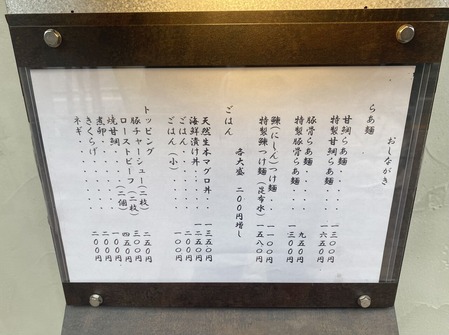 おしながき
らあ麺
甘鯛らあ麺・・・・一三〇〇円
特製甘鯛らあ麺・・一六五〇円
豚骨らあ麺・・・・九五〇円
特製豚骨らあ麺・・一三〇〇円
鰊(にしん)つけ麺・・一一〇〇円
特製鰊つけ麺(昆布水)一五八〇円
各大盛 二〇〇円増し
ごはん
天然生本マグロ丼・・一三五〇円
海鮮漬け丼・・・・一二五〇円
ごはん・・・・・・二〇〇円
ごはん(小)・・・・一〇〇円
トッピング
豚チャーシュー(二枚)二五〇円
ローストビーフ(二枚)三〇〇円
焼甘鯛・・・・(二個)四五〇円
煮卵・・・・・・一〇〇円
きくらげ・・・・二〇〇円
ネギ・・・・・・二〇〇円